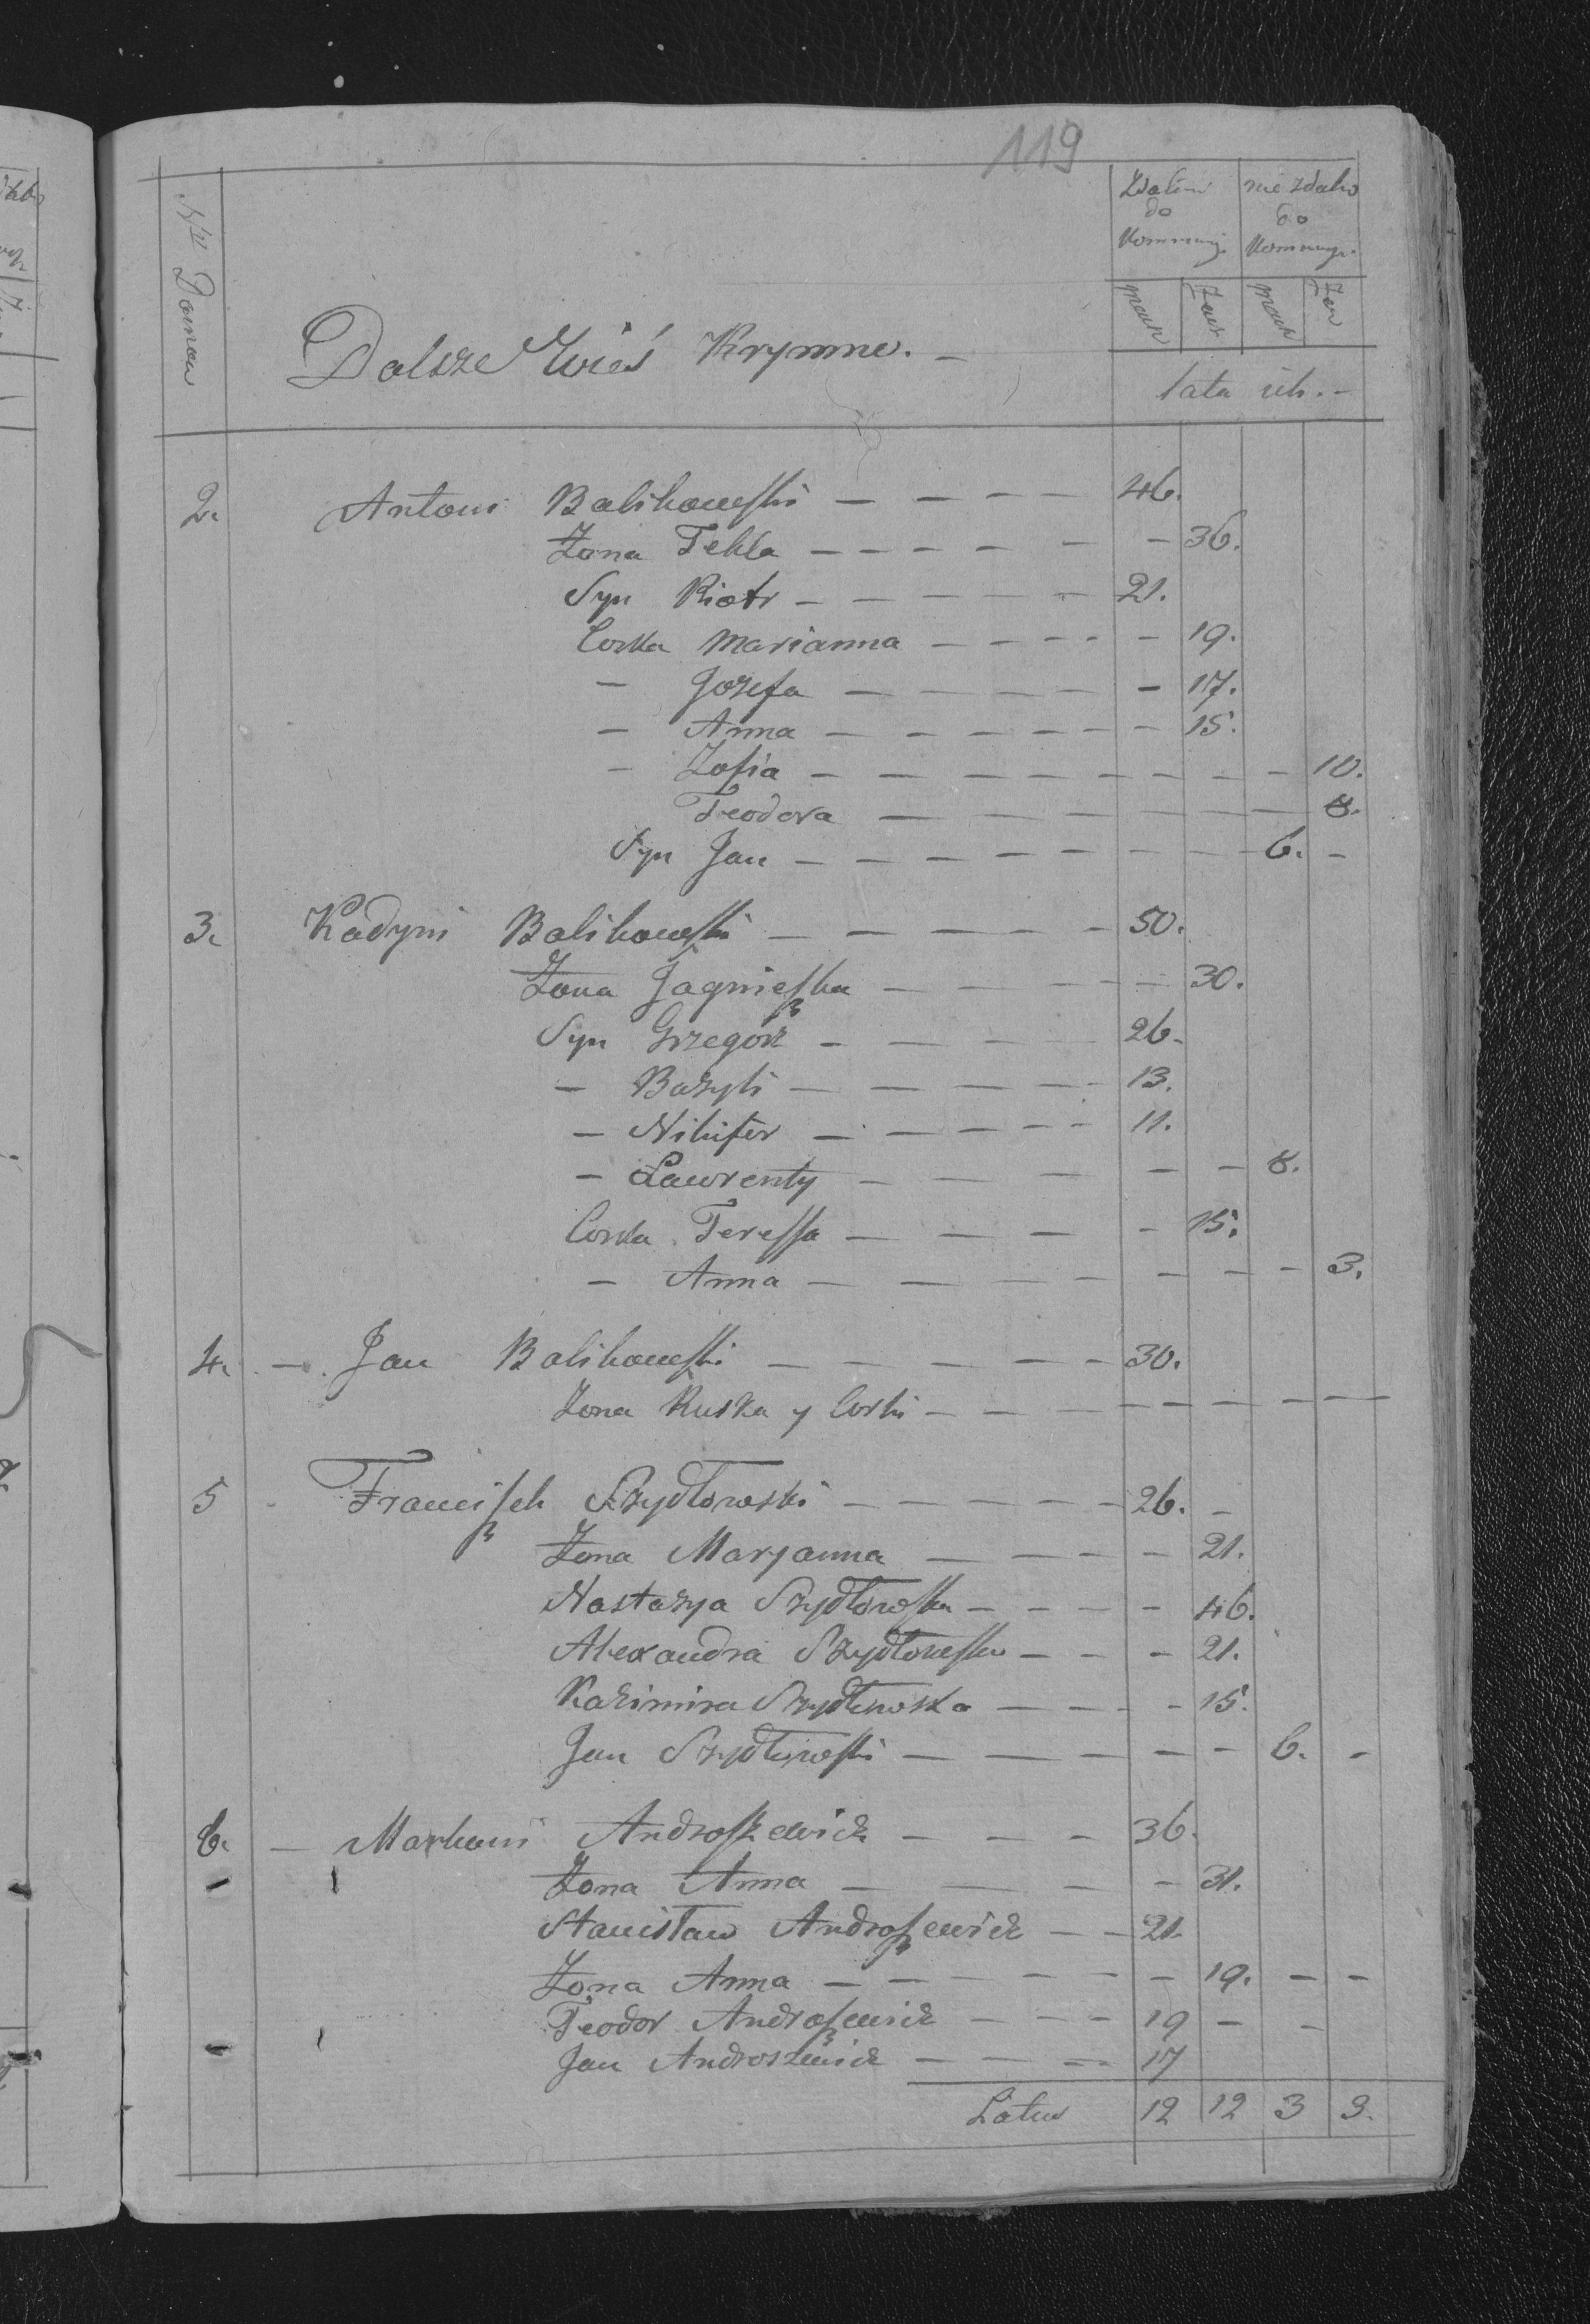 119
Nr Domow
Dalsze Wieś Krymne. –
Zdatni do Kommunij.
nie zdatn do Kommuni.
męzk
żens
męzk
żen
lata ich. –
2. Antoni Balikowski – – – – 46.
Żona Tekla – – – – – – 36.
Syn Piotr – – – – – 21.
Corka Marianna – – – – – 19.
– Jozefa – – – – – 17.
– Anna – – – – – – 15.
– Zofia – – – – – – – – 10.
Teodora – – – – – – 8.
Syn Jan – – – – – – – 6. –
3. Balikowski – – – – – 50.
Żona Jagnieszka – – – – – 30.
Syn Grzegorz – – – 26.
– Bazyli – – – – – 13.
– Nikifor – – – – – 11.
– Lawrenty – – – – – 8.
Corka Teressa – – – – 15.
– Anna – – – – – – – – 3.
4. – Jan Balikowski – – – – – 30.
Zona Ruska y Corki – – – – – – –
5 Franciszek Szydłowski – – – – – 26. –
Żona Maryanna – – – – 21.
Nastazya Szydłowska – – – – 46.
Alexandra Szydłowska – – – 21.
Kazimira Szydłowska – – – – 15.
Jan Szydłowski – – – – – 6. –
6. – Androszewicz – – – 36.
Żona Anna – – – – 31.
Stanisław Androszewicz – – 21.
Żona Anna – – – – – – 19. – –
Teodor Androszewicz – – – 19 – –
Jan Androszewicz – – – 17
Latus 12 12 3 3.